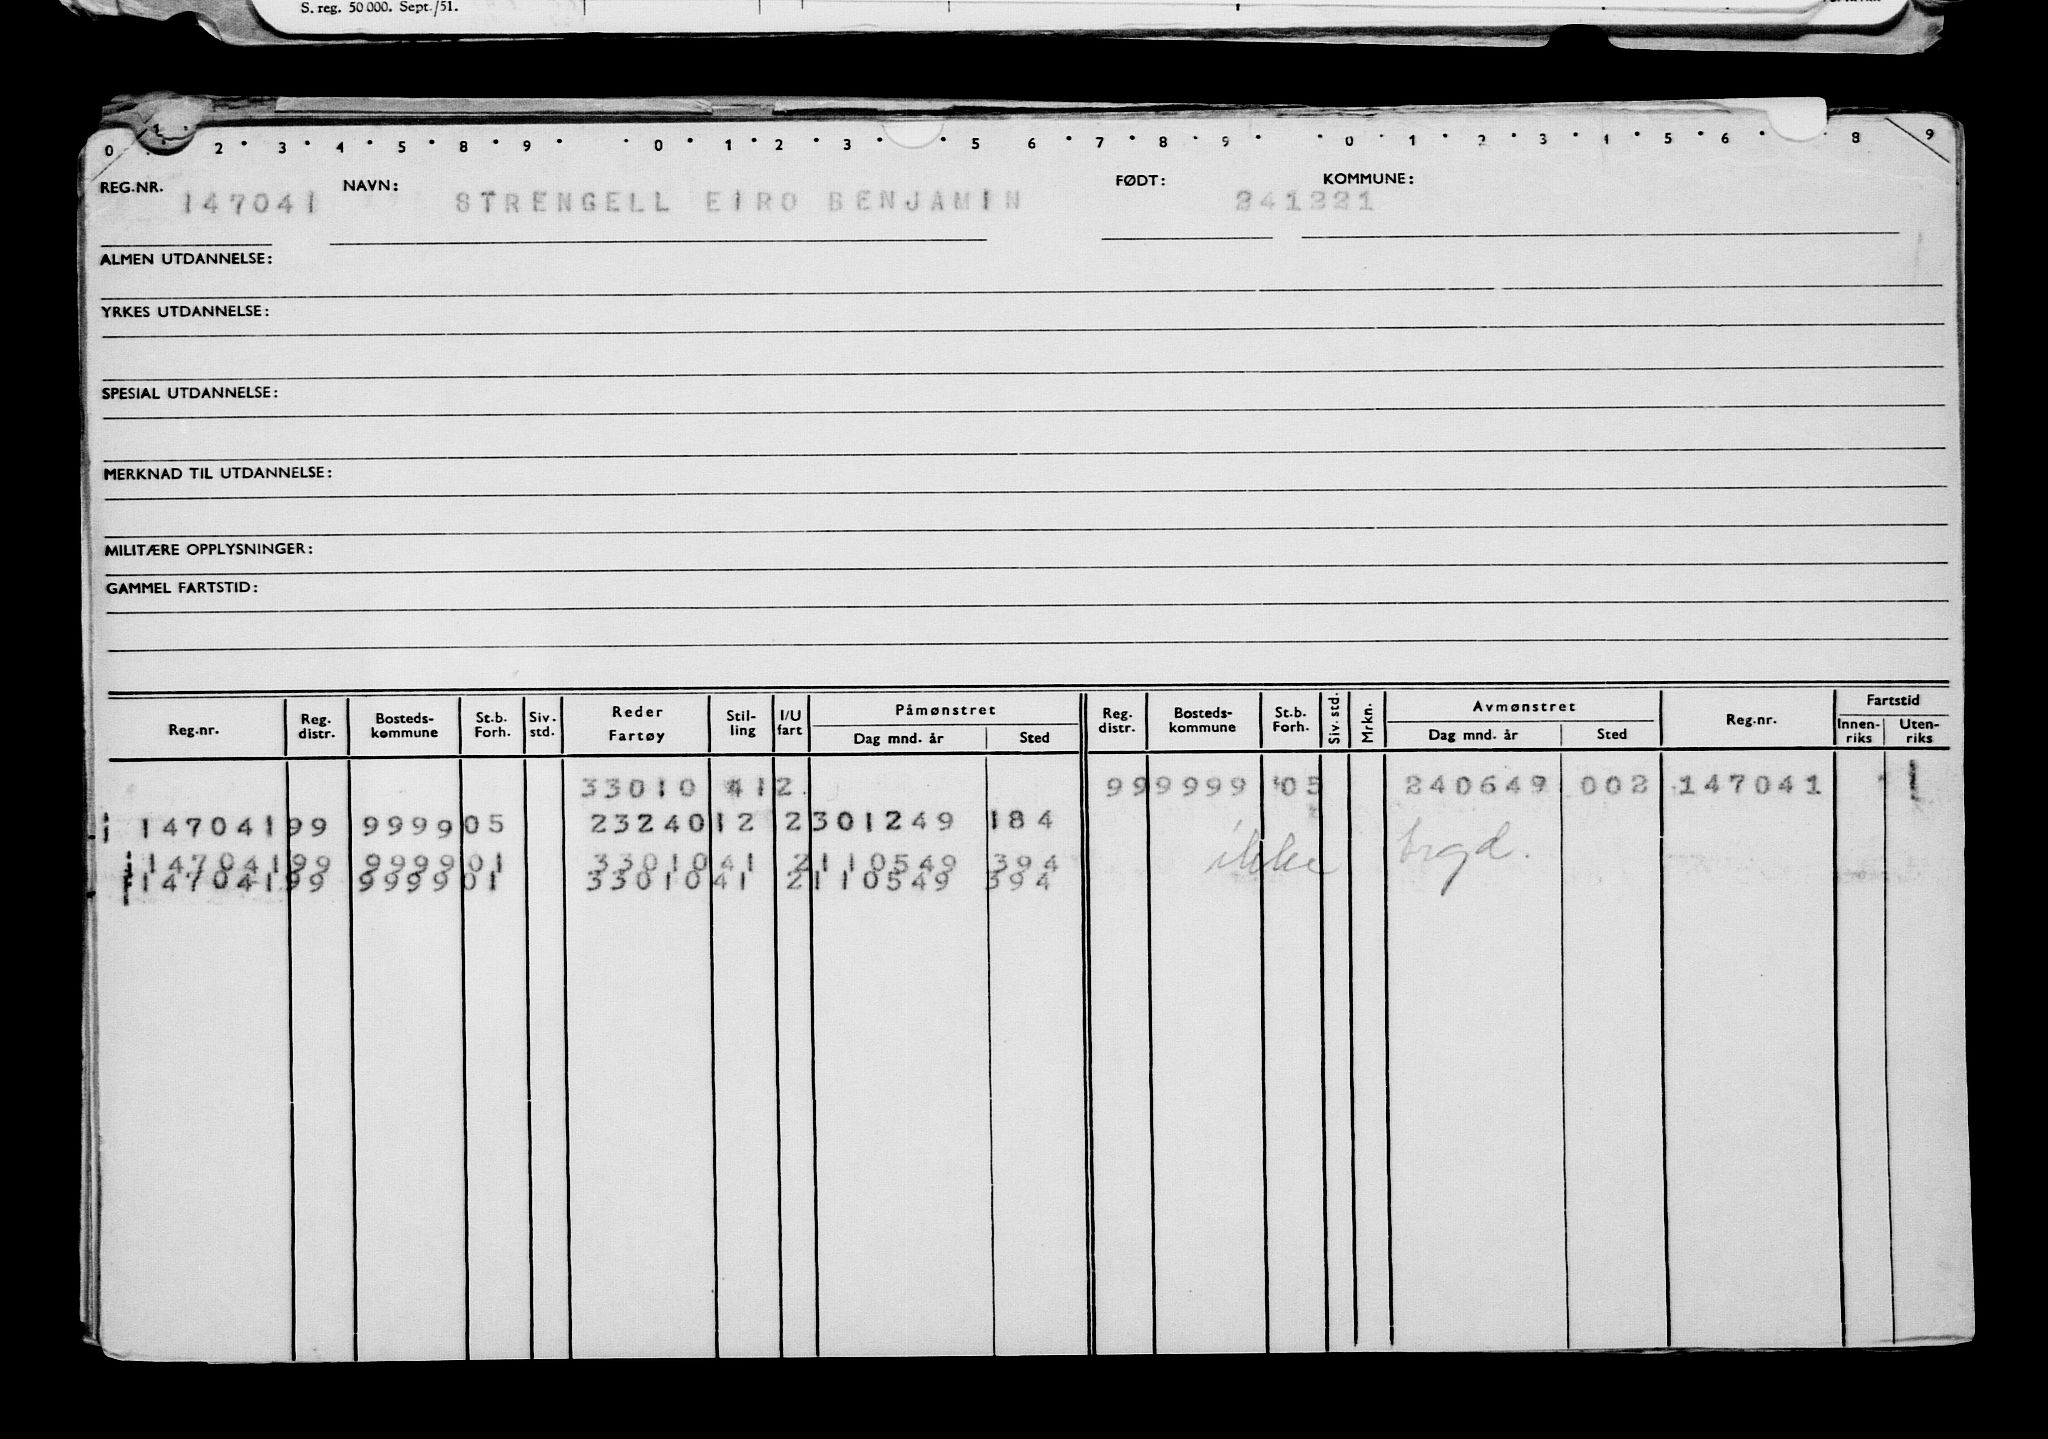 S. reg. 50 000. Sept./51.
0 2 3 4 5 8 9 0 1 2 3 5 6 7 8 9 0 1 2 3 4 5 6 8 9
REG.NR. 147041 NAVN: STRENGELL EIRO BENJAMIN FØDT: 241221 KOMMUNE:
ALMEN UTDANNELSE:
YRKES UTDANNELSE:
SPESIAL UTDANNELSE:
MERKNAD TIL UTDANNELSE:
MILITÆRE OPPLYSNINGER:
GAMMEL FARTSTID:
Reg.nr. Reg. distr. Bosteds-kommune St.b. Forh. Siv. std. Reder Fartøy Stil-ling I/U fart Påmønstret Dag mnd. år Sted Reg. distr. Bosteds-kommune St.b. Forh. Siv. std. Mrkn. Avmønstret Dag mnd. år Sted Reg.nr. Fartstid Innen-riks Uten-riks
33010 412 999999 05 240649 002 147041 1
147041 99 9999 05 23240 12 2 301249 184
147041 99 9999 01 33010 41 2 110549 394 ikke
147041 99 9999 01 33010 41 2 110549 394